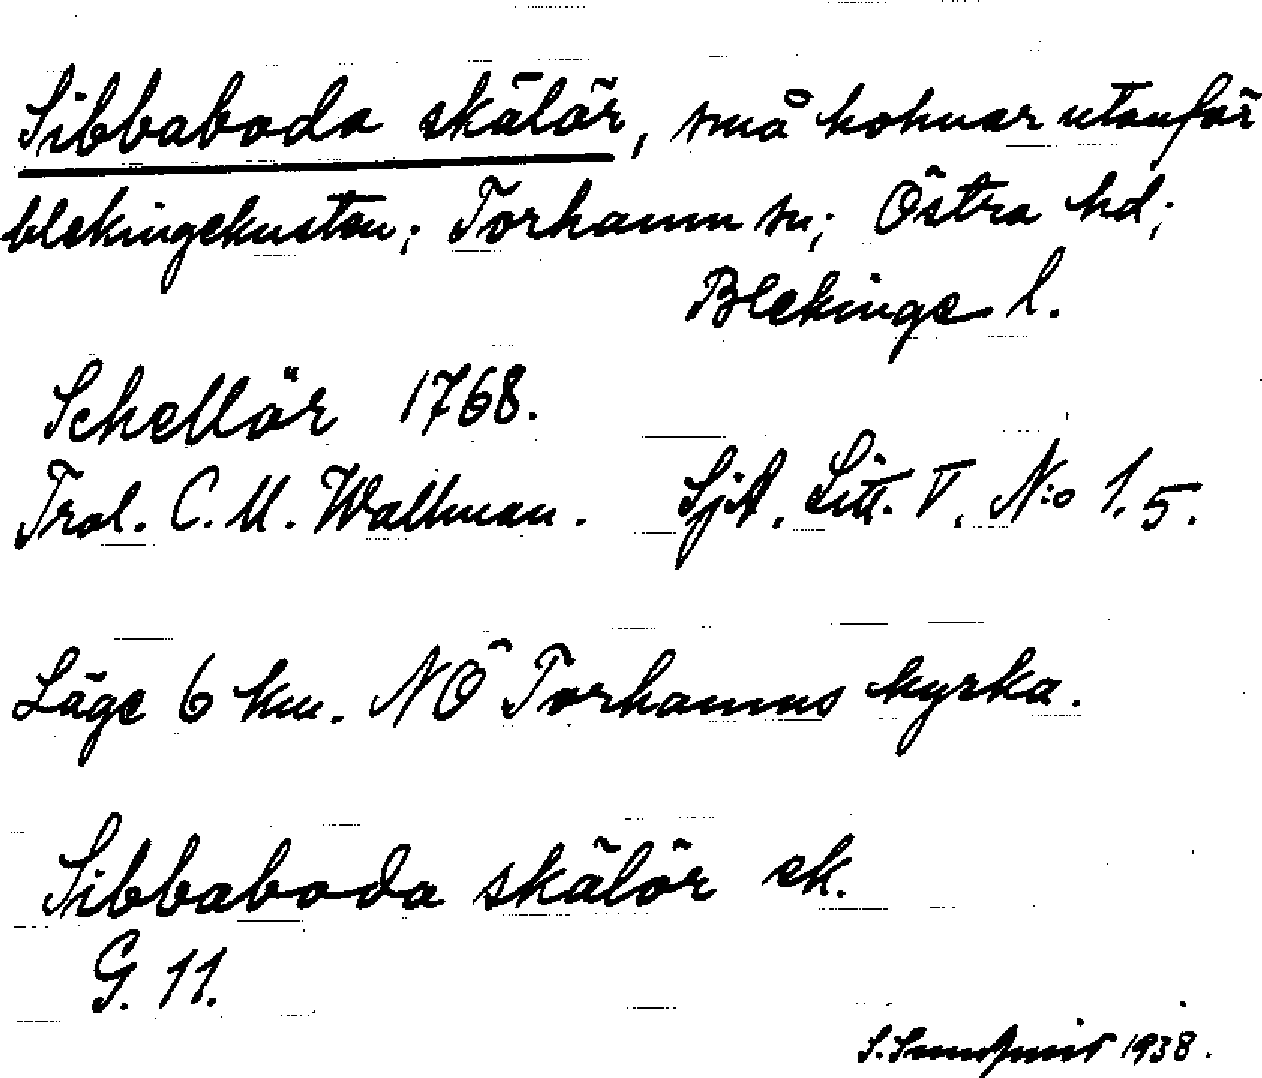 Sibbaboda skälör, små holmar utanför
blekingekusten; Torhamn sn; Östra hd;
Blekinge l.
Schellör 1768.
Trol. C. M. Wallman. SjA. Litt. V. N:o 1.5.
Läge 6 km. NÖ Torhamns kyrka.
Sibbaboda skälör ek.
G. 11.
S. Sundquist 1938.